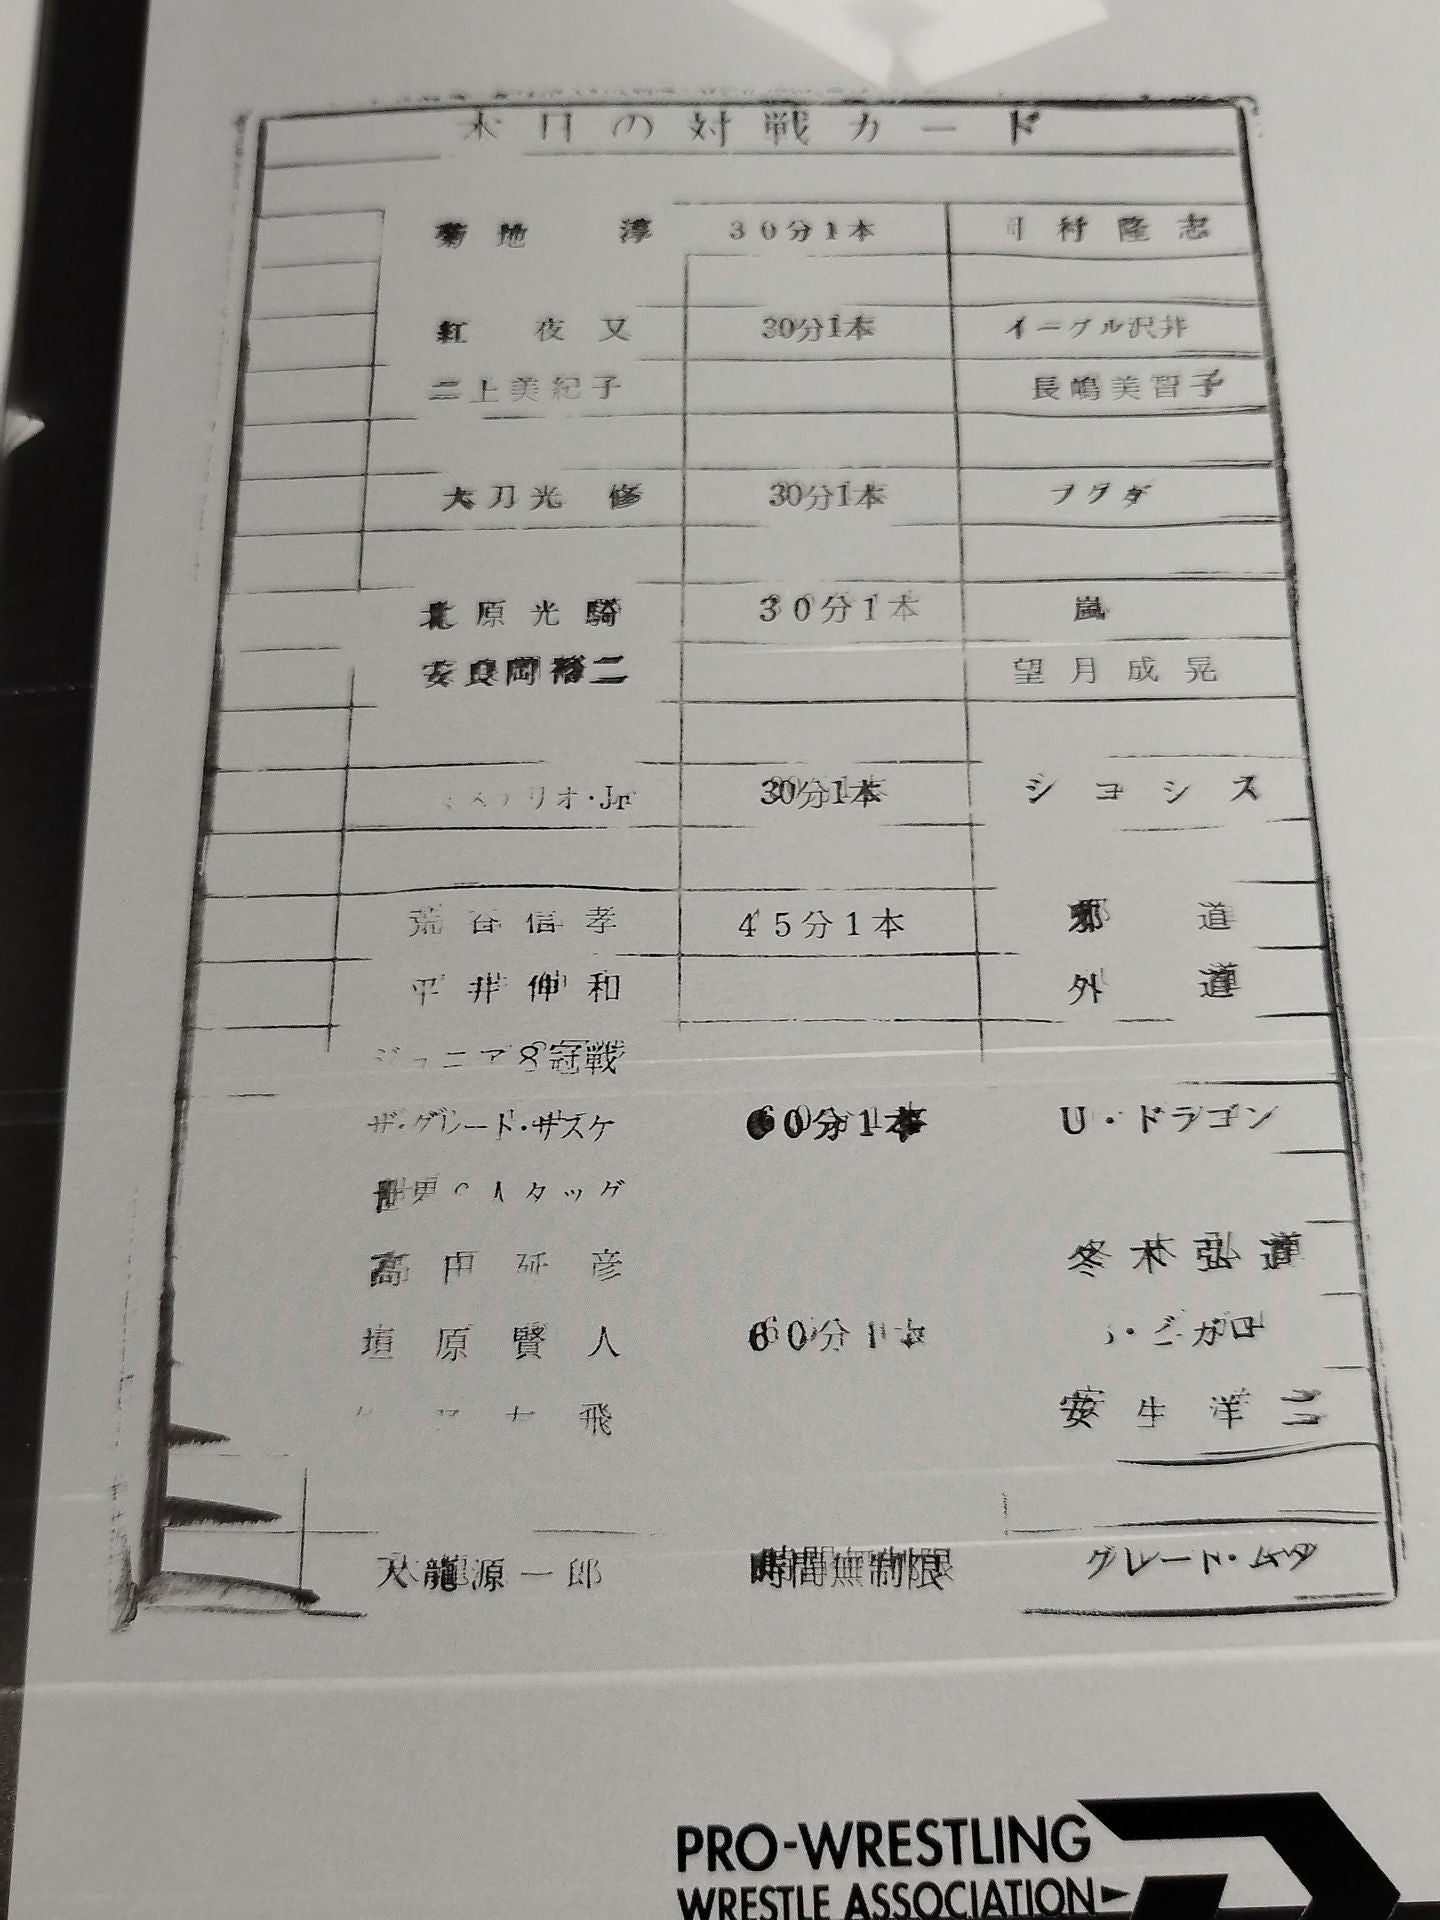 本日の対戦カード
菊地 淳 30分1本 村隆志
紅 夜叉 30分1本 イーグル沢井
二上美紀子 長嶋美智子
大刀光 修 30分1本 フクダ
北原光騎 30分1本 嵐
安良岡裕二 望月成晃
リオ・Jr 30分1本 シコシス
荒谷信孝 45分1本 邪道
平井伸和 外道
ジュニア8冠戦
ザ・グレート・サスケ 60分1本 U・ドラゴン
世界6人タッグ
高田延彦 冬木弘道
垣原賢人 60分1本 ・ビガロ
飛 安生洋二
天龍源一郎 時間無制限 グレート・ムタ
PRO-WRESTLING
WRESTLE ASSOCIATION